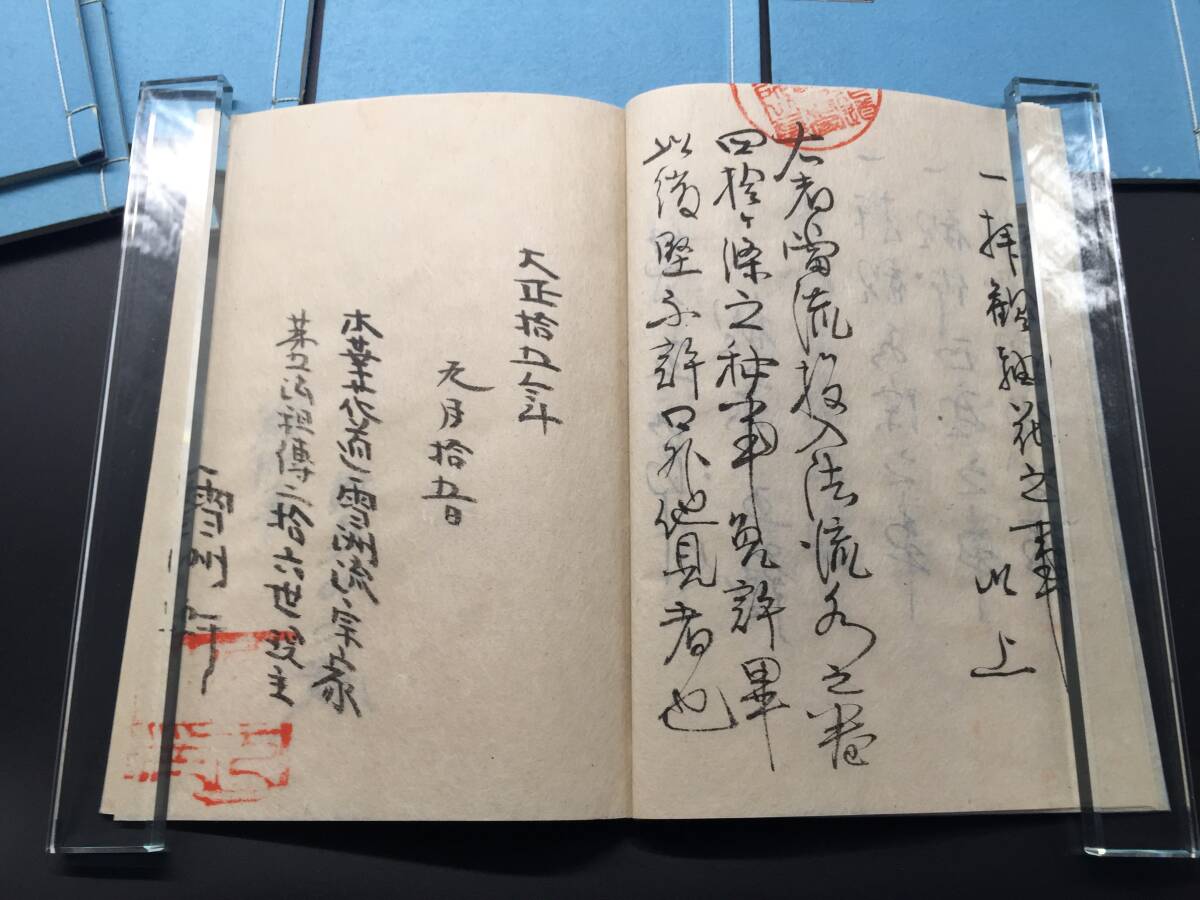 一 拝観細花之事 以上
右者當流投入活流水之巻
四拾ヶ條之秘事免許畢
以後堅不許口外他見者也
大正拾五年
元月拾五日
雪洲流宗家
法祖傳二拾六世
雪洲